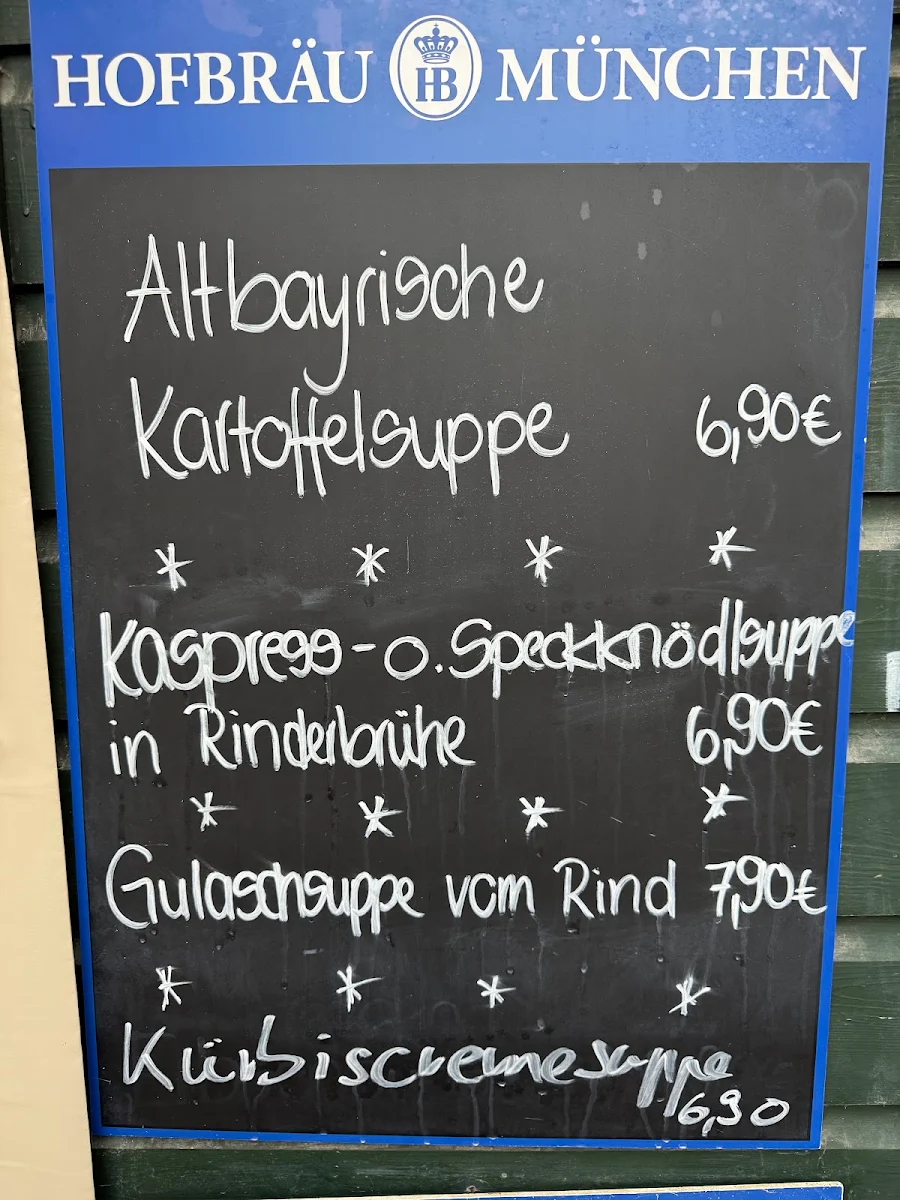 HOFBRÄU HB MÜNCHEN
Altbayrische
Kartoffelsuppe 6,90€
* * * *
Kaspress- o. Speckknödlsuppe
in Rinderbrühe 6,90€
* * * *
Gulaschsuppe vom Rind 7,90€
* * * *
Kürbiscremesuppe
6,90